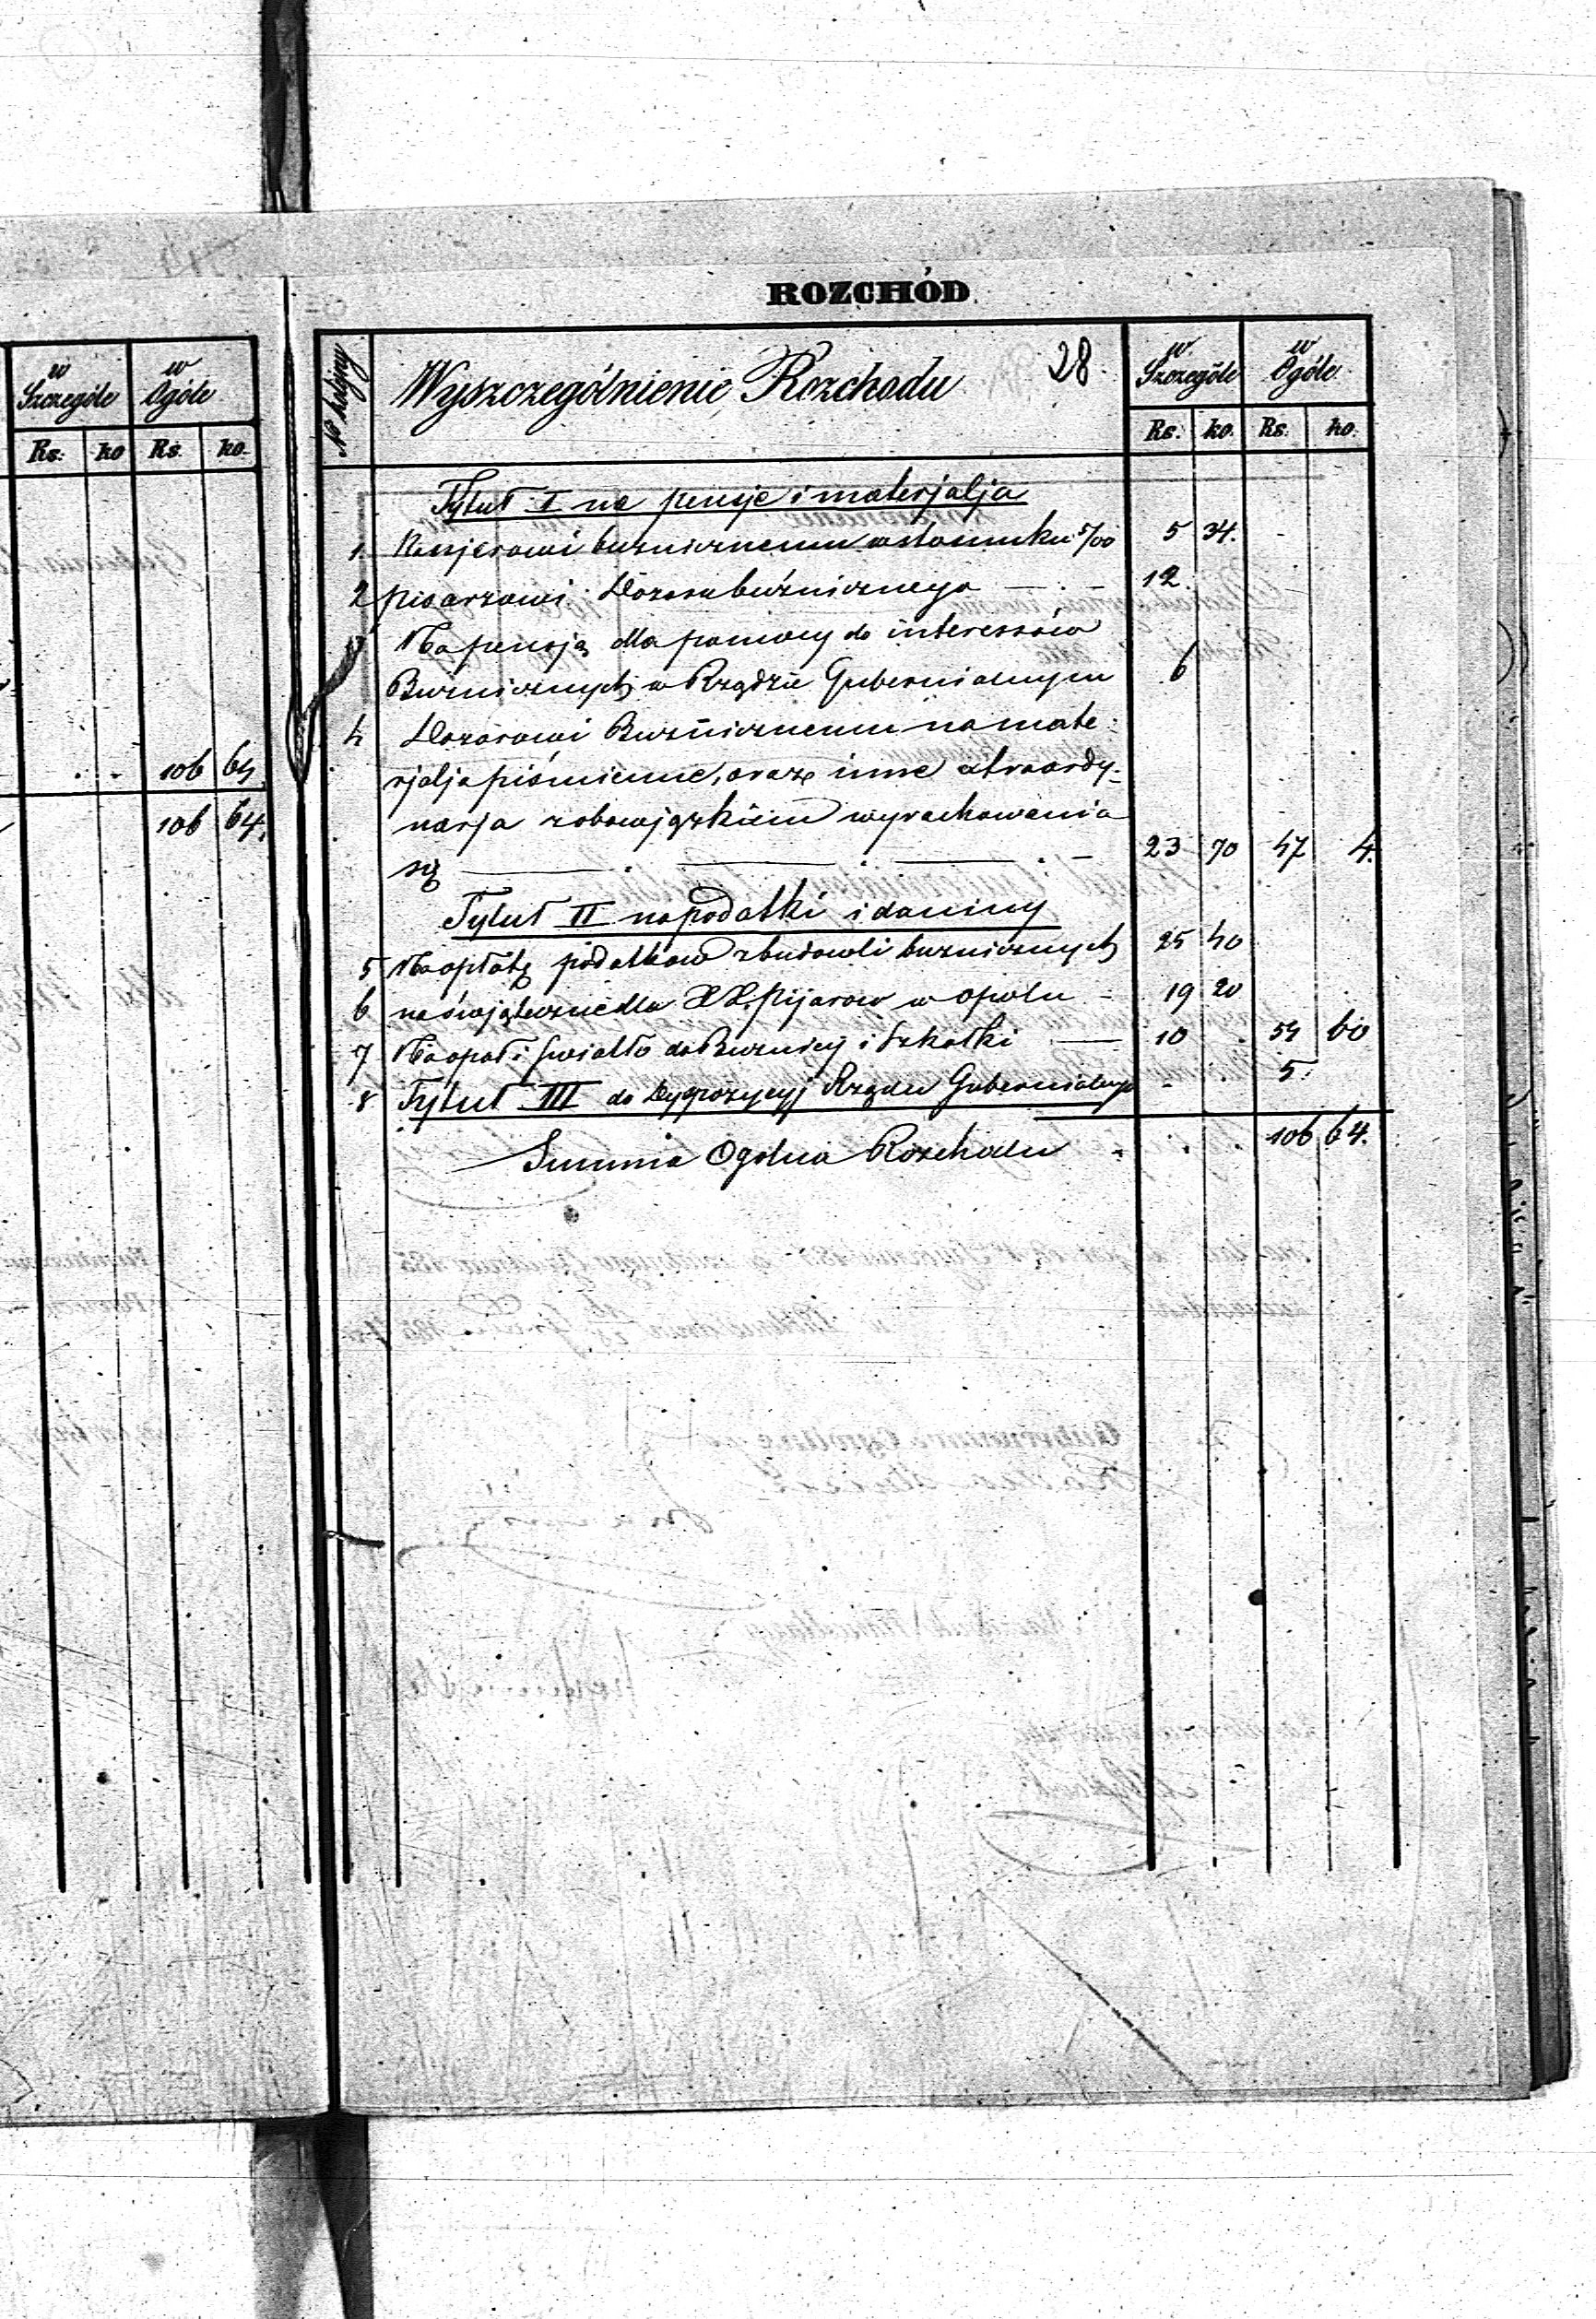 w Szczególe
w Ogóle
Rs. ko Rs. ko.
106 64.
106 64.
ROZCHÓD.
28.
№ kolejny
Wyszczególnienie Rozchodu
w Szczególe
w Ogóle
Rs. ko. Rs. ko.
Tytuł I na pensje i materjalja
1. Kassjerowi bużnicznemu w stosunku 5/00 5 34.
2 pisarzowi Dozoru bużnicznego 12.
3 Na pensją dla pomocy do interessów
Bużnicznych w Rządzie Gubernialnym 6
4 Dozorowi Bużnicznemu na mate:
rjalja piśmienne, oraz inne extraordy:
narja z obowjązkiem wyrachowania
się 23 70 47 4.
Tytuł II na podatki i daniny
5 Na opłatę podatkow z budowli bużnicznych 25 40
6 na świąteczne dla XX. Pijarow w Opolu 19 20
7 Na opał i swiatło do Bużnicy i Szkołki 10 54 60
8 Tytuł III do Dyspozycyj Rządu Gubernialnego 5.
Summa Ogolna Rozchodu 106 64.